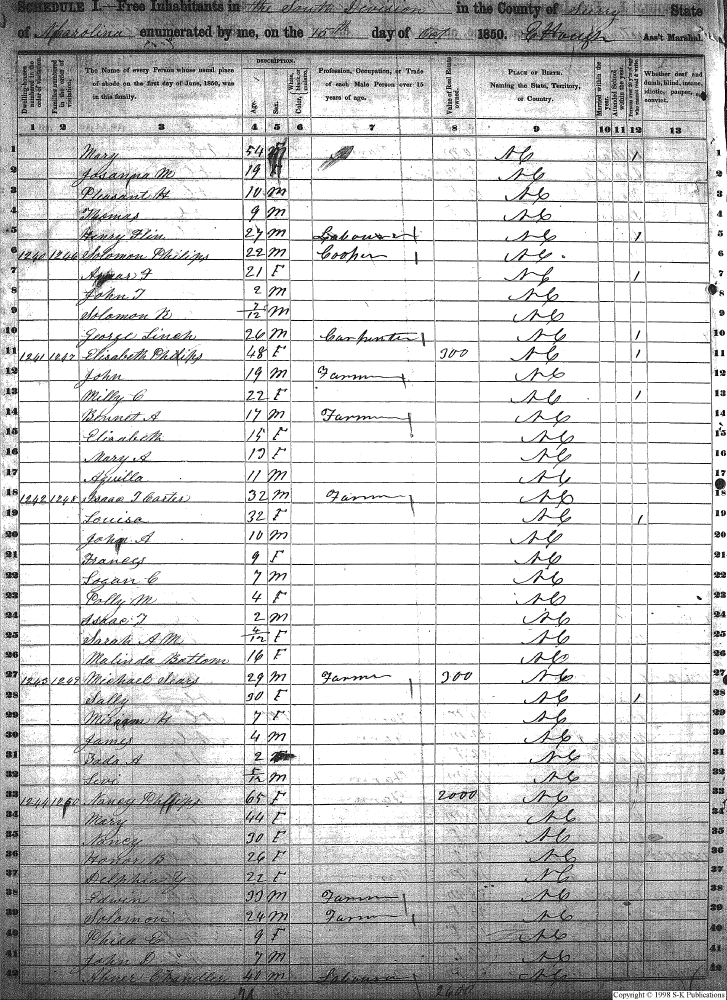 SCHEDULE I.—Free Inhabitants in the South Division in the County of Surry State
of N Carolina enumerated by me, on the 15th day of Oct 1850. Ass't Marshal.
DESCRIPTION.
Dwelling-houses numbered in the order of visitation.
Families numbered in the order of visitation.
The Name of every Person whose usual place of abode on the first day of June, 1850, was in this family.
Age.
Sex.
White, black, or mulatto.
Profession, Occupation, or Trade of each Male Person over 15 years of age.
Value of Real Estate owned.
PLACE OF BIRTH. Naming the State, Territory, or Country.
Married within the year.
Attended School within the year.
Whether deaf and dumb, blind, insane, idiotic, pauper, or convict.
1 2 3 4 5 6 7 8 9 10 11 12 13
1 Mary 54 NC 1 1
2 19 NC 2
3 Pleasant H 10 M NC 3
4 Thomas 9 M NC 4
5 Henry Flin 27 M Labourer NC 1 5
6 1240 1246 Solomon Philips 22 M Cooper NC 6
7 21 F NC 1 7
8 John T 2 M NC 8
9 Solomon 7/12 M NC 9
10 George Linch 26 M Carpenter NC 1 10
11 1241 1247 Elizabeth Philips 48 F 300 NC 1 11
12 John 19 M Farmer NC 12
13 Milly C 22 F NC 1 13
14 Bennet A 17 M Farmer NC 14
15 Elizabeth 15 F NC 15
16 Mary A 13 F NC 16
17 Aquilla 11 M NC 17
18 1242 1248 Isaac T Carter 32 M Farmer NC 18
19 Louisa 32 F NC 1 19
20 John A 10 M NC 20
21 Frances 9 F NC 21
22 Logan C 7 M NC 22
23 Polly M 4 F NC 23
24 Isaac T 2 M NC 24
25 Sarah A M 4/12 F NC 25
26 Malinda Bottom 16 F NC 26
27 1243 1249 Michael Sears 29 M Farmer 300 NC 27
28 Sally 30 F NC 1 28
29 H 7 F NC 29
30 James 4 M NC 30
31 A 2 NC 31
32 Levi 5/12 M NC 32
33 1244 1250 Nancy Phillips 65 F 2000 NC 33
34 Mary 44 F NC 34
35 Nancy 30 F NC 35
36 Honor B 26 F NC 36
37 22 F NC 37
38 Edwin 33 M Farmer NC 38
39 Solomon 24 M Farmer NC 39
40 E 9 F NC 40
41 John 7 M NC 41
42 Abner Chandler 40 M Labourer NC 42
2600
Copyright © 1998 S-K Publications